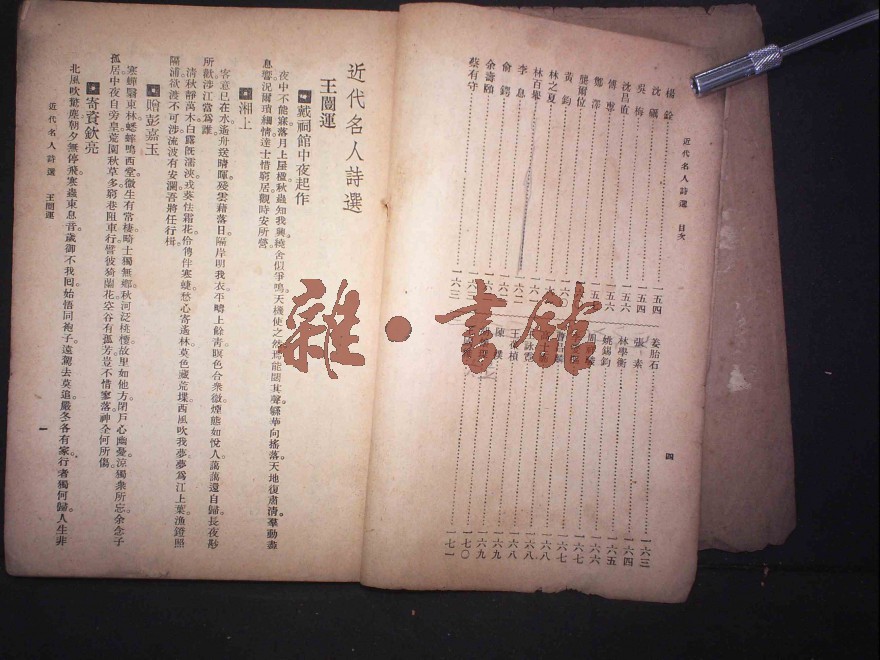 近代名人詩選 目次
四
楊銓 一五四
沈礪 一五四
吳梅
沈昌直 一五六
傅尃
鄭澤
龔爾位
黃鈞
林之夏
林百舉
李息
俞鍔
余壽頤
蔡有守 一六三
姜胎石 一六三
張素 一六四
林學衡 一六五
姚錫鈞 一六六
一六七
一六七
一六八
一六八
王 楨 一六八
陳樸 一六九
一六九
一七〇
一七一
雜·書館
近代名人詩選
王闓運
戴祠館中夜起作
夜中不能寐。落月上屋楹。秋蟲知我興。繞舍似爭鳴。天機使之然。焉能閟其聲。繇華向搖落。天地復肅清。羣動盡
息響。況爾瑣細情。達士惜窮居。觀時安所營。
湘上
客意已在水。遙舟送晴暉。殘雲藉落日。隔岸明我衣。平疇上餘靑。暝色合衆微。煙態如悅人。萬萬還自歸。長夜尠
所歡。涉江當爲誰。
淸秋靜萬木。白露旣濡浹。戎葵怯霜花。伶俜伴寒蜨。愁心寄遙林。莫色藏荒堞。西風吹我夢。夢爲江上葉。漁鐙照
隔浦。欲渡不可涉。流波有安瀾。吾將任行楫。
贈彭嘉玉
寒蟬翳東林。蟋蟀鳴西堂。微生有常棲。畸士獨無鄉。秋河泛桃慺。故里如他方。閉戶心幽憂。涼獨衆所忘。余念子
孤居。中夜自旁皇。荒園秋草多。窮巷阻車行。譬彼猗蘭花。空谷有孤芳。豈不惜寥落。神全何所傷。
寄資欽亮
北風吹驚塵。朝夕無停飛。寒蟲東息音。歲御不我囘。始悟同袍子。遠駕去莫追。嚴冬各有家。行者獨何歸。人生非
近代名人詩選 王闓運
一